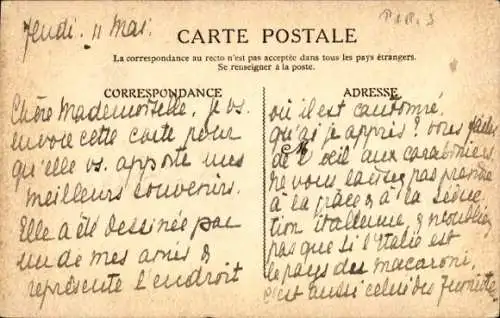 Jeudi. 11 Mai.
CARTE POSTALE
La correspondance au recto n'est pas acceptée dans tous les pays étrangers.
Se renseigner à la poste.
CORRESPONDANCE
Chère Mademoiselle, je vs.
envoie cette carte pour
qu'elle vs. apporte mes
meilleurs souvenirs.
Elle a été dessinée par
un de mes amis &
représente l'endroit
ADRESSE
où il est cantonné.
qu'ai je appris? Vous faites
de l'oeil aux carabiniers
ne vous laissez pas prendre
à la grâce & à la séduc
tion italienne, n'oubliez
pas que si l'Italie est
le pays des macaroni,
c'est aussi celui des